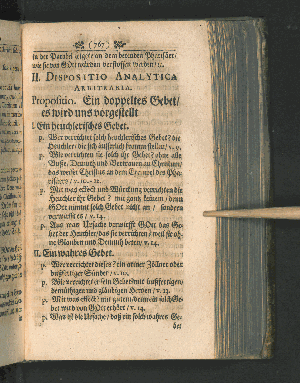 (767)
in der Parabel zeigte an dem betenden Phariseer/
wie sie von GOtt würden verstossen werden/ ꝛc.
II. DISPOSITIO ANALYTICA
ARBITRARIA.
Propositio. Ein doppeltes Gebet/
es wird uns vorgestellt
I. Ein heuchlerisches Gebet.
p. Wer verrichtet solch heuchlerisches Gebet? die
Heuchler/ die sich äusserlich fromm stellen/ v. 9.
p. Wie verrichten sie solch ihr Gebet? ohne alle
Busse, Demuth und Vertrauen zu Christum/
das weiset Christus an dem Exempel des Pha-
risäers/ v. 11. 12.
p. Mit was effect und Würckung verrichten die
Heuchler ihr Gebet? mit gantz keinem/ denn
GOtt nimmt solch Gebet nicht an / sondern
verwirfft es / v. 14.
p. Aus was Ursache verwirfft GOtt das Ge-
bet der Heuchler/ das sie verrichten / weil sie oh-
ne Glauben und Demuth beten/ v. 14.
II. Ein wahres Gebet.
p. Wer verrichtet dieses? ein armer Zöllner oder
bußfertiger Sünder / v. 13.
p. Wie verrichtet er sein Gebet? mit bußfertigen,
demüthigen und gläubigen Hertzen / v. 13.
p. Mit was effect? mit gutem/ denn ein solch Ge-
bet wird von GOtt erhört / v. 14.
p. Was ist die Ursache/ daß ein solch wahres Ge-
bet